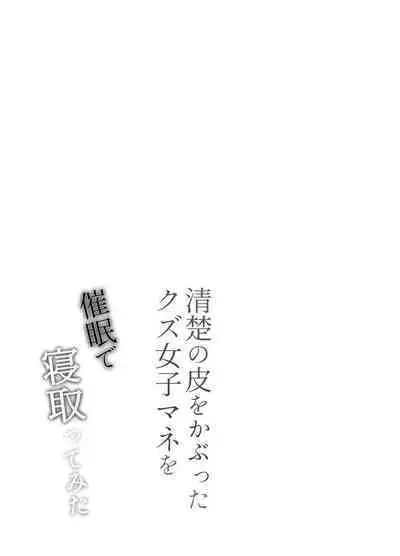 清楚の皮をかぶった
クズ女子マネを
催眠で
寝取ってみた